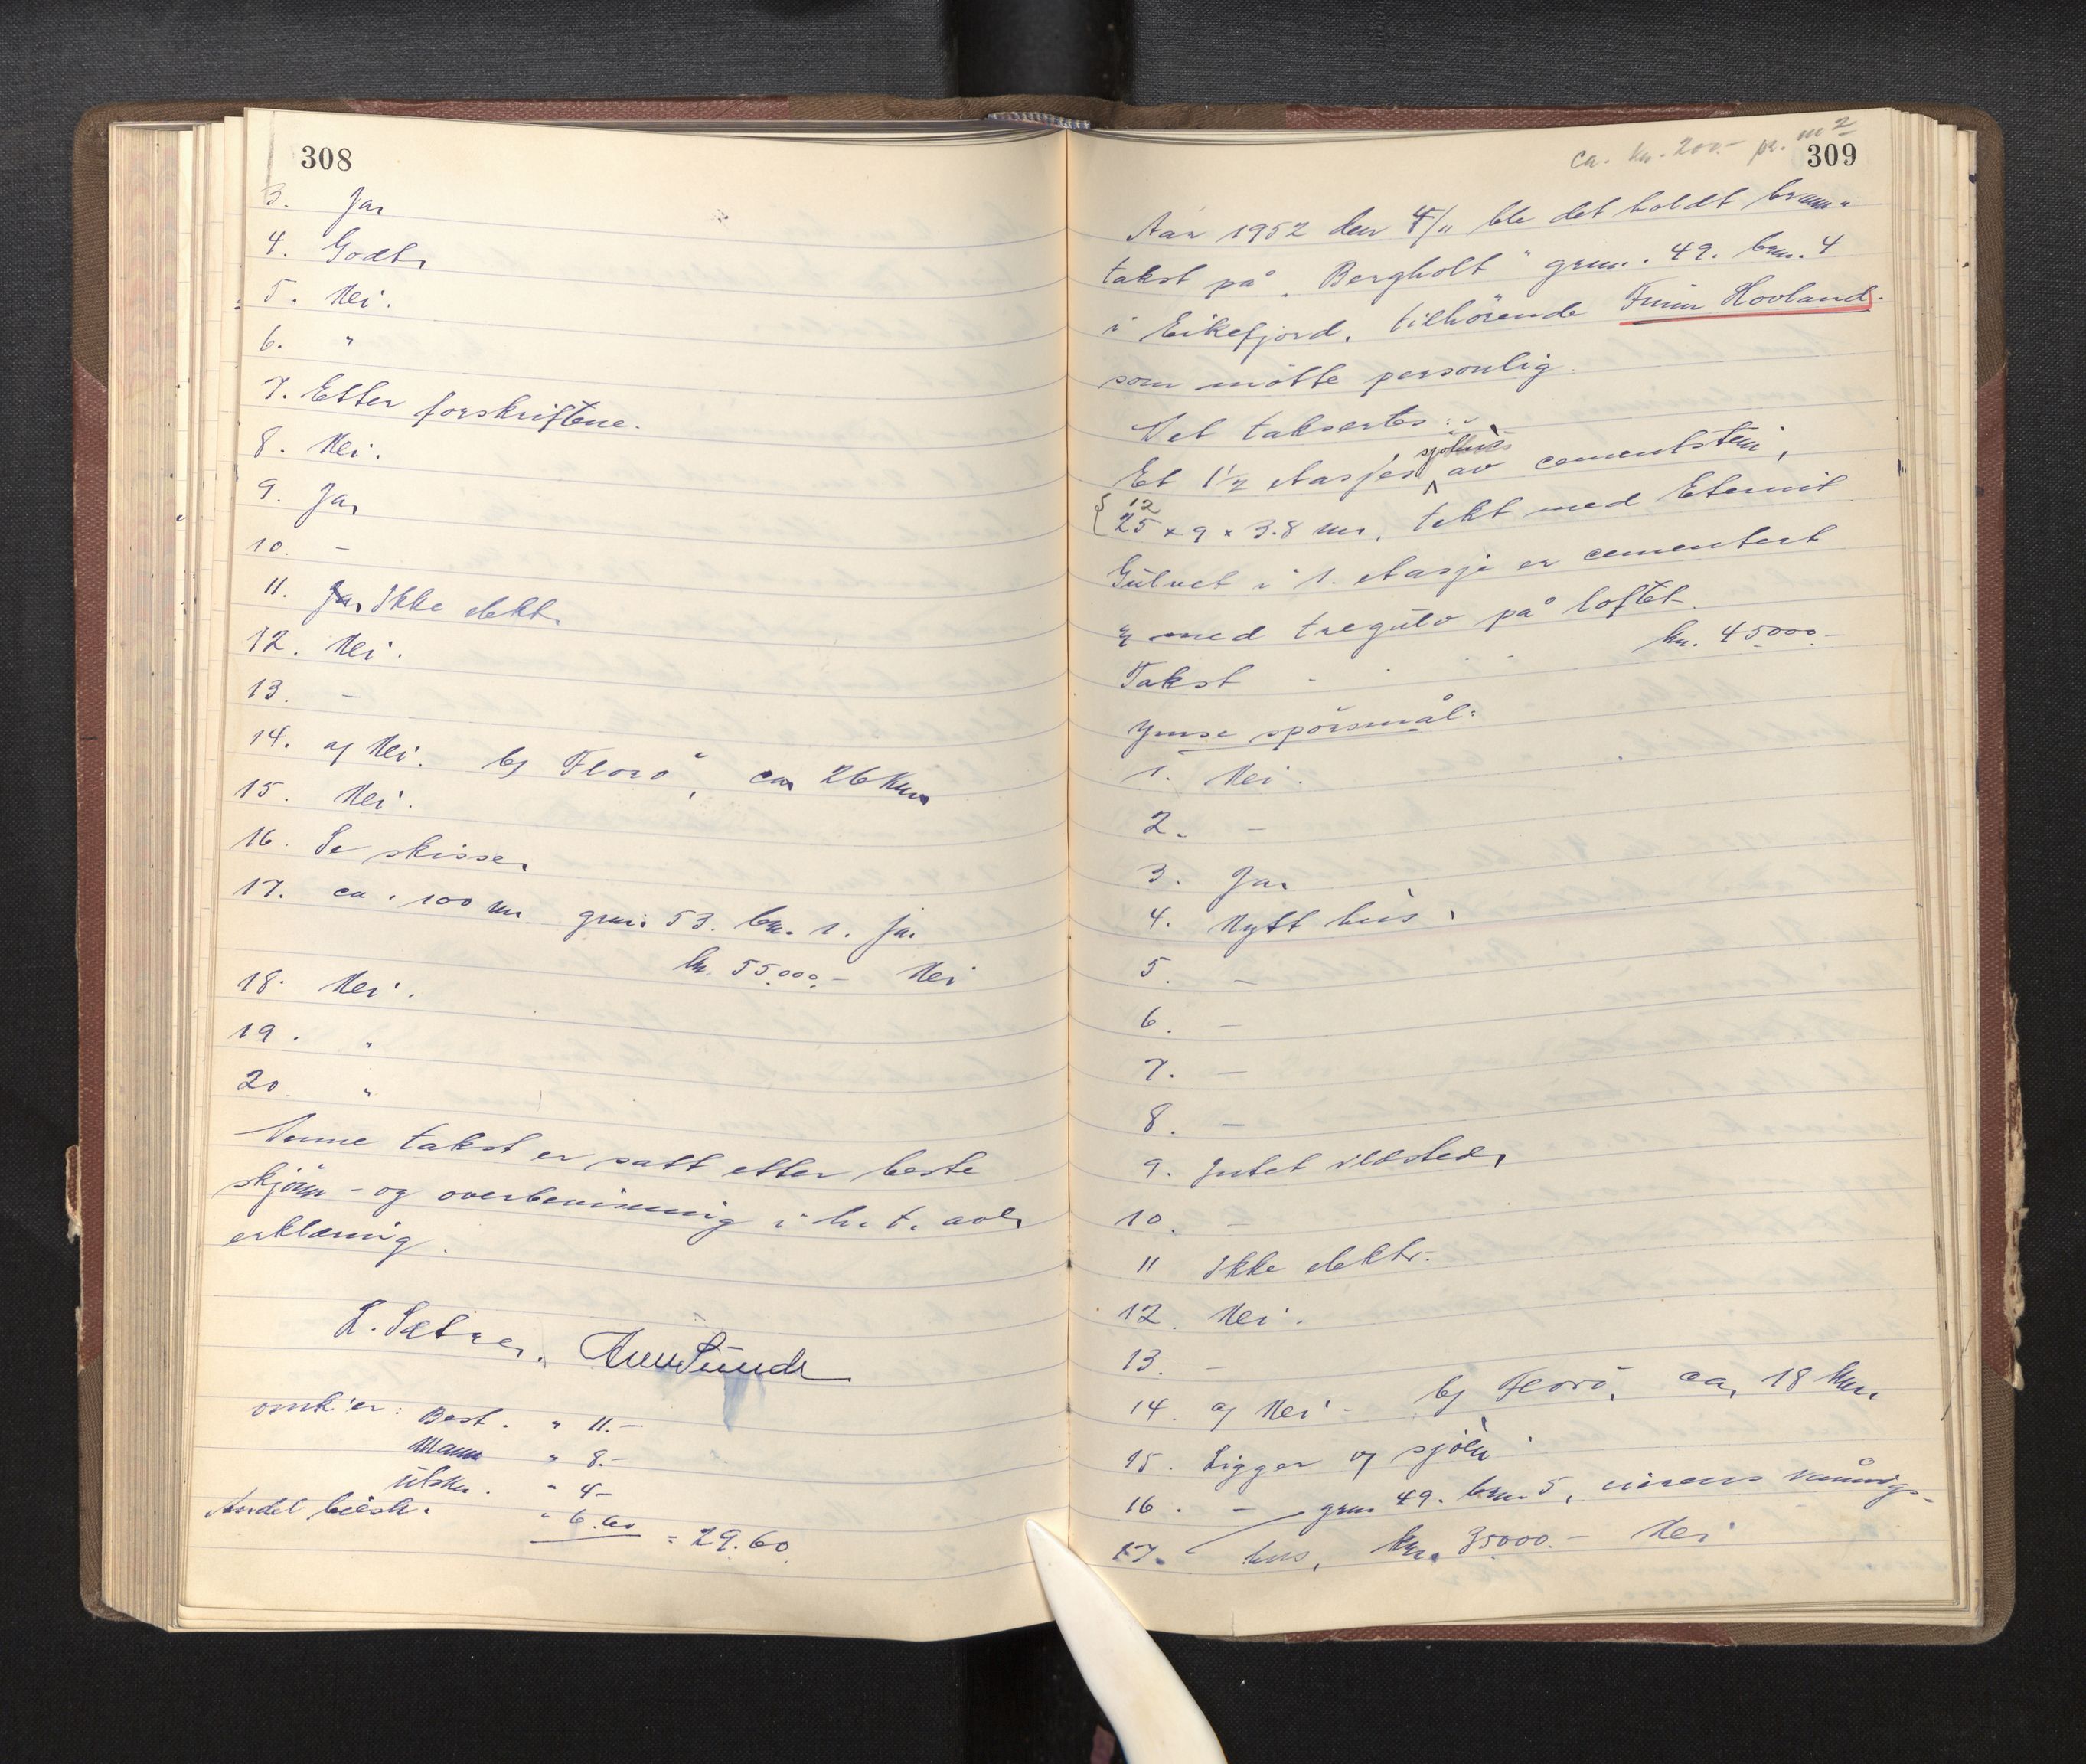 308
3. Ja,
4. Godt,
5. Nei.
6. "
7. Etter forskriftene.
8. Nei.
9. Ja,
10. -
11. Ja, Ikke elekt.
12. Nei.
13. -
14. a) Nei. b) Florø, ca 26 km
15. Nei.
16. Se skisse,
17. ca. 100 m gnr. 53. bnr. 1. Ja.
kr. 55.000.- Nei
18. Nei.
19. "
20. "
Denne takst er satt etter beste
skjønn - og overbevisning i h. t. avl.
erklæring.
L. Sætre.
omk'er: Best. " 11.-
Mann " 8.-
Utskr. " 4-
Andel " 6.60 = 29.60
ca. kr. 200.- pr. m2
309
Aar 1952 den 4/11 ble det holdt brann-
takst på "Bergholt" gnr. 49. bnr. 4
i Eikefjord, tilhörende Finn Hovland.
som møtte personlig.
Det takseertes:
Et 1½ etasjes sjøhus av cementstein,
12
25 x 9 x 3.8 m, tekt med Eternit
Gulvet i 1. etasje er cementert
& med tregulv på loftet.
Takst kr. 45000-
Ymse spörsmål:
1. Nei.
2. -
3. Ja,
4. Nytt hus.
5. -
6. -
7. -
8. -
9. Intet ildsted,
10. -
11 Ikke elektr.
12. Nei.
13. -
14. a) Nei - b) Florø, ca, 18 km.
15. Ligger v/ sjøen
16. - gnr 49. bnr. 5, eierens vånings-
17. hus, kr. 35000.- Nei